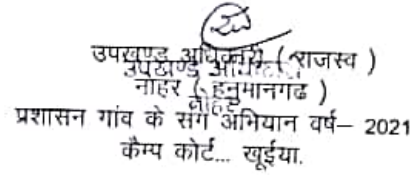 उपखण्ड अधिकारी (राजस्व )
नोहर ( हनुमानगढ )
प्रशासन गांव के संग अभियान वर्ष– 2021
कैम्प कोर्ट... खूईया.